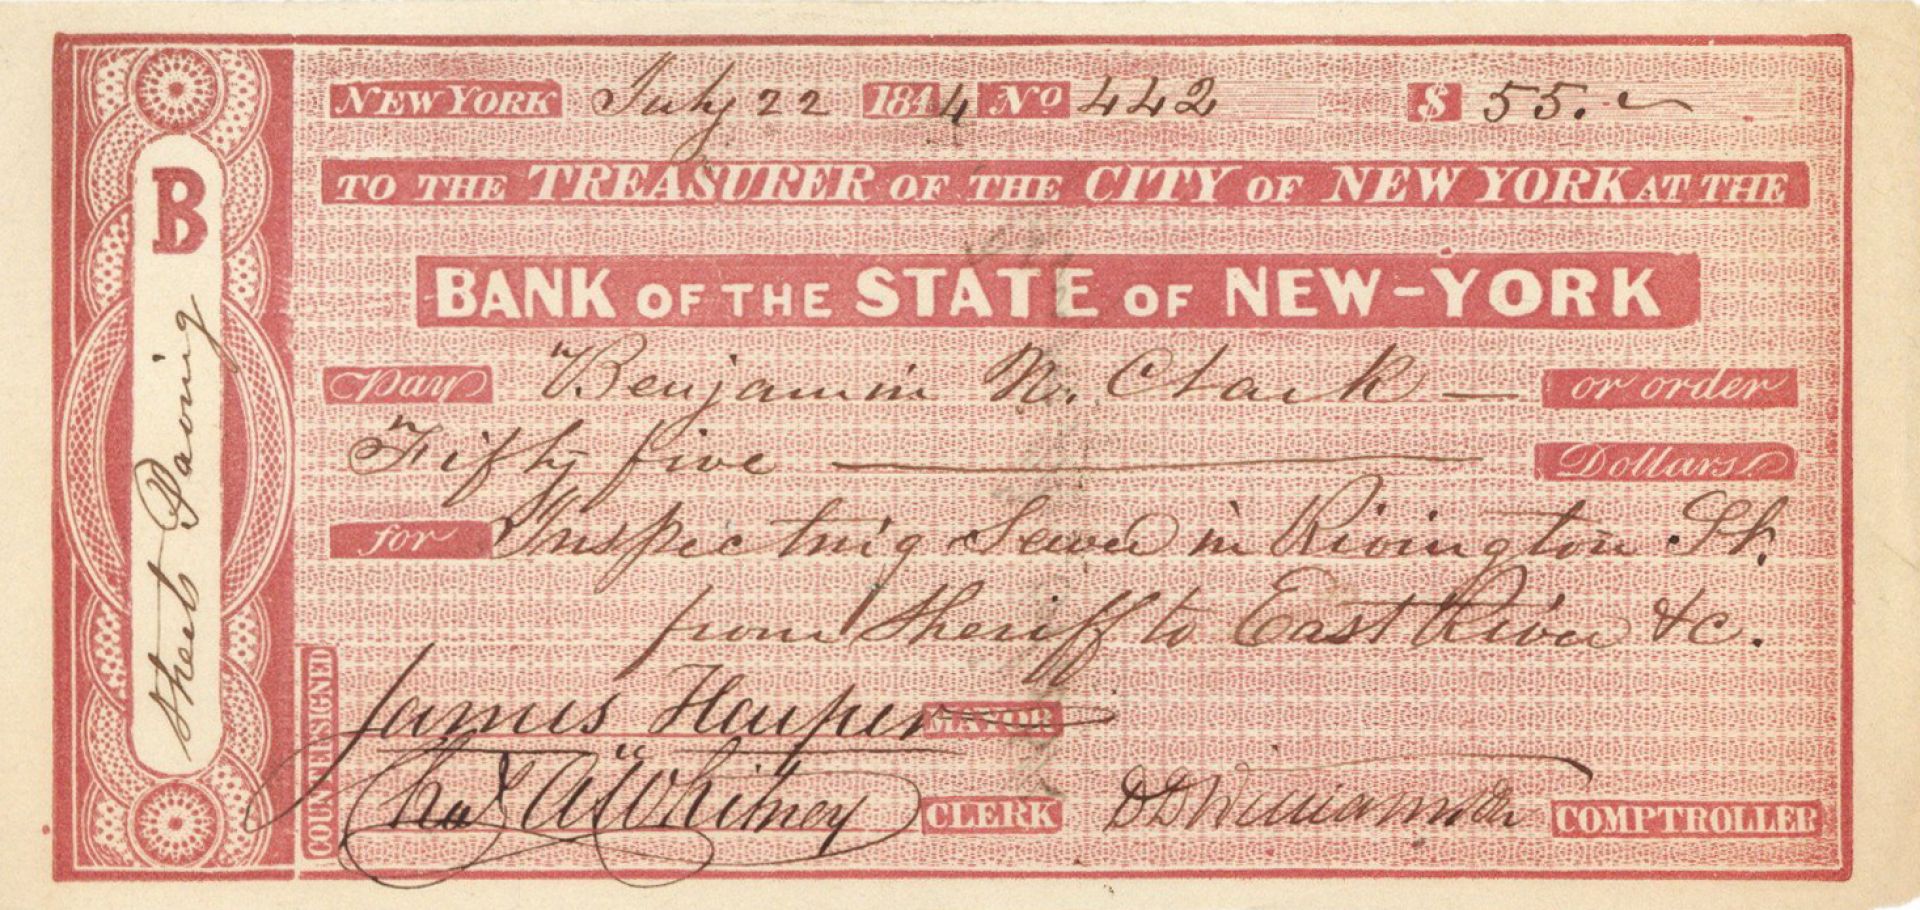 NEW YORK July 22 1844 No 442 $ 55.
TO THE TREASURER OF THE CITY OF NEW YORK AT THE
BANK OF THE STATE OF NEW-YORK
Pay Benjamin N. Clark or order
Fifty five Dollars
for Inspecting Sewer in Rivington St.
from Sheriff to East River &c.
James Harper MAYOR
Chas A Whitney CLERK
D D Williamson COMPTROLLER
COUNTERSIGNED
B
Street Paving